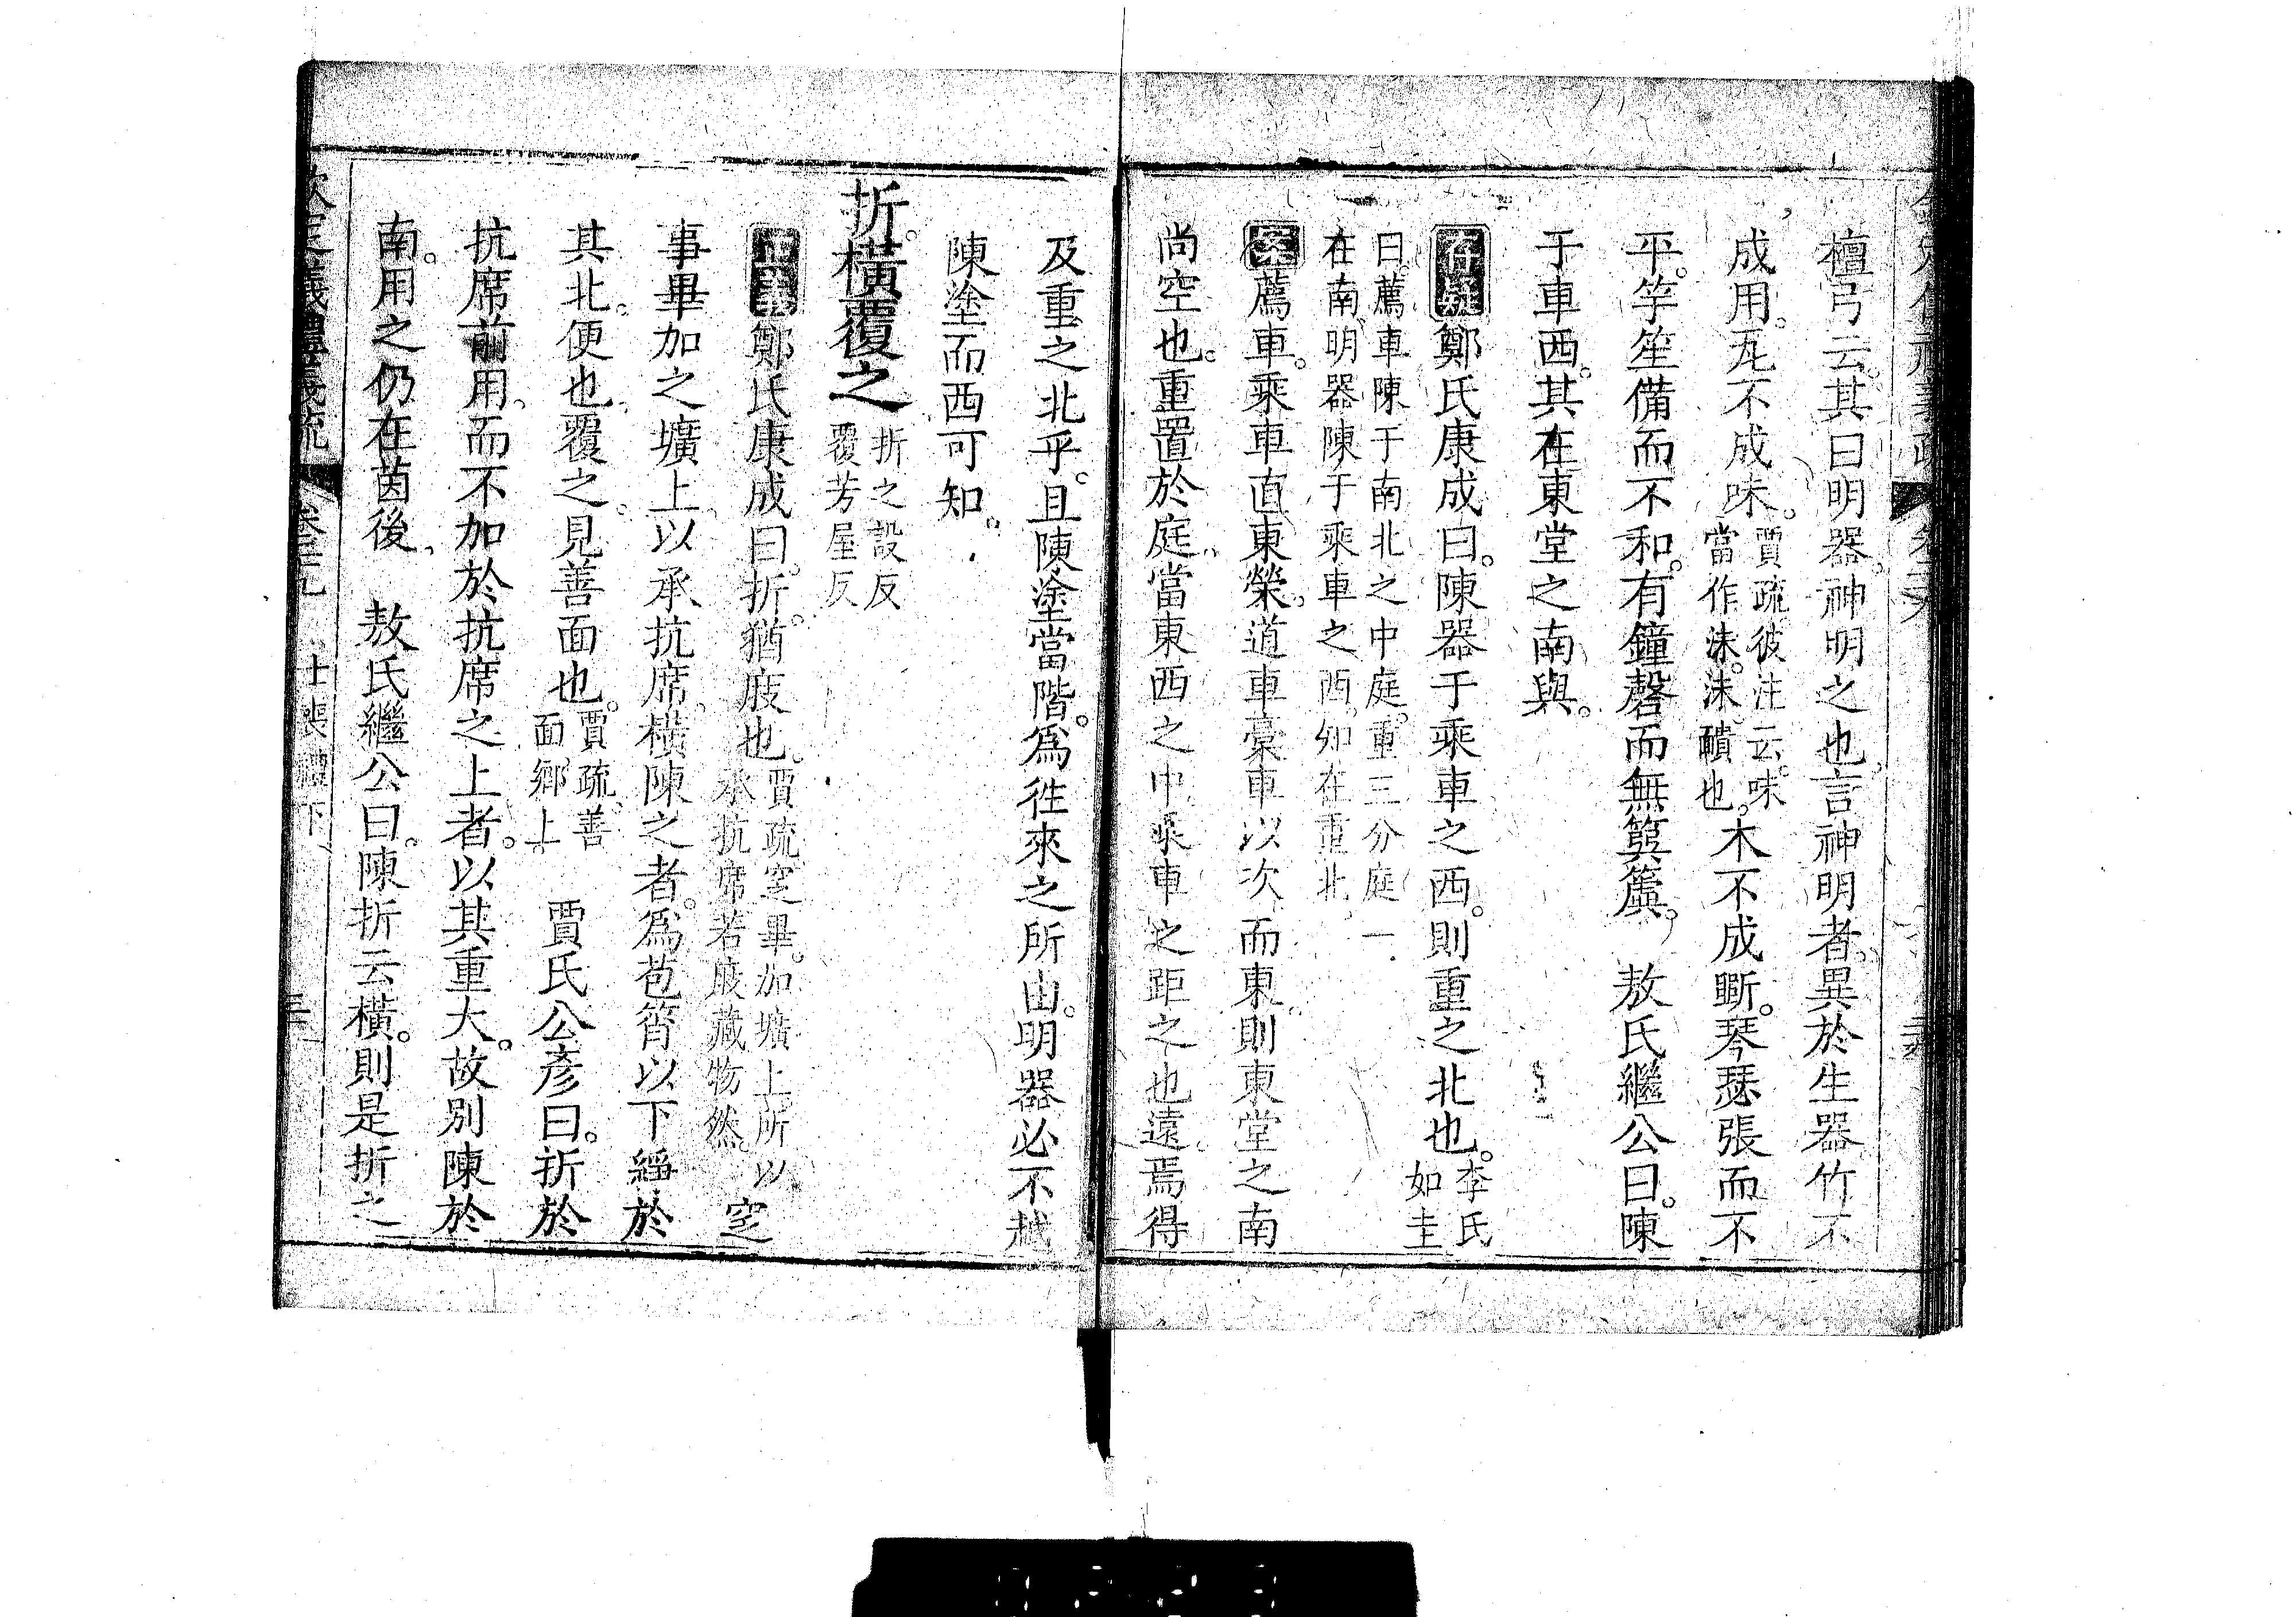 檀弓云。其曰明器。神明之也。言神明者。異於生器。竹不
成用。瓦不成味。賈疏彼注云。味當作沬。沬靧也。木不成斲。琴瑟張而不
平。竽笙備而不和。有鐘磬而無簨簴。　敖氏繼公曰。陳
于車西。其在東堂之南與。
存疑鄭氏康成曰。陳器于乘車之西。則重之北也。李氏如圭
曰。薦車陳于南北之中庭。重三分庭一
在南。明器陳于乘車之西。知在重北。
案薦車。乘車直東榮。道車稾車以次而東。則東堂之南
尚空也。重置於庭。當東西之中。乘車之距之也遠。焉得
及重之北乎。且陳塗當階。爲徃來之所由。明器必不越
陳塗而西可知。
折。橫覆之折之設反覆芳屋反
正義鄭氏康成曰。折。猶庪也。賈疏窆畢。加壙上。所以承抗席。若庪藏物然。窆
事畢加之壙上。以承抗席。橫陳之者。爲苞筲以下綪於
其北。便也。覆之。見善面也。賈疏。善面。鄉上。　賈氏公彥曰。折於
抗席前用。而不加於抗席之上者。以其重大。故別陳於
南。用之仍在茵後。　敖氏繼公曰。陳折云橫。則是折之
欽定儀禮義疏　卷三九　士喪禮下